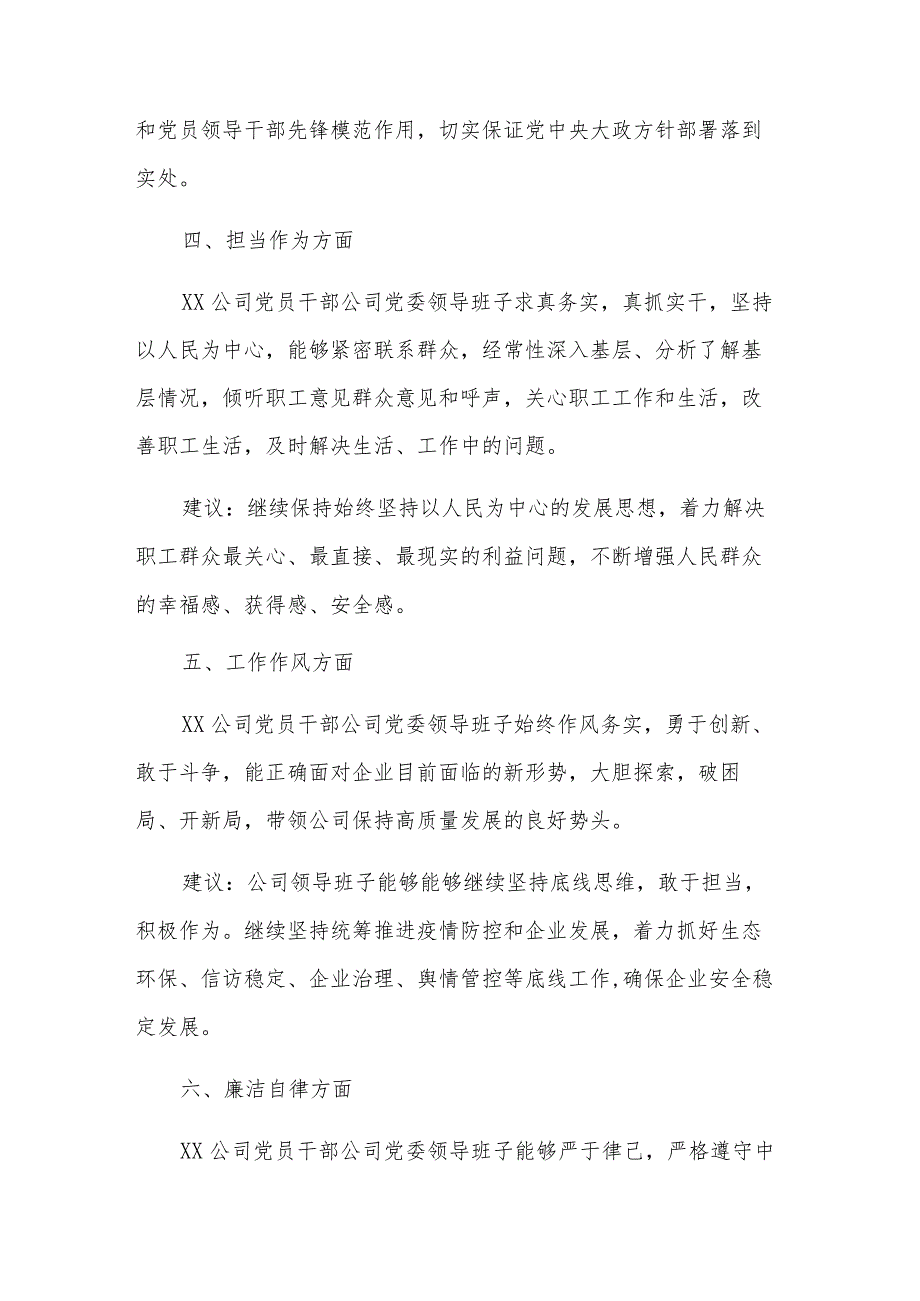 和党员领导干部先锋模范作用，切实保证党中央大政方针部署落到
实处。
四、担当作为方面
XX 公司党员干部公司党委领导班子求真务实，真抓实干，坚持
以人民为中心，能够紧密联系群众，经常性深入基层、分析了解基
层情况，倾听职工意见群众意见和呼声，关心职工工作和生活，改
善职工生活，及时解决生活、工作中的问题。
建议：继续保持始终坚持以人民为中心的发展思想，着力解决
职工群众最关心、最直接、最现实的利益问题，不断增强人民群众
的幸福感、获得感、安全感。
五、工作作风方面
XX 公司党员干部公司党委领导班子始终作风务实，勇于创新、
敢于斗争，能正确面对企业目前面临的新形势，大胆探索，破困
局、开新局，带领公司保持高质量发展的良好势头。
建议：公司领导班子能够能够继续坚持底线思维，敢于担当，
积极作为。继续坚持统筹推进疫情防控和企业发展，着力抓好生态
环保、信访稳定、企业治理、舆情管控等底线工作,确保企业安全稳
定发展。
六、廉洁自律方面
XX 公司党员干部公司党委领导班子能够严于律己，严格遵守中